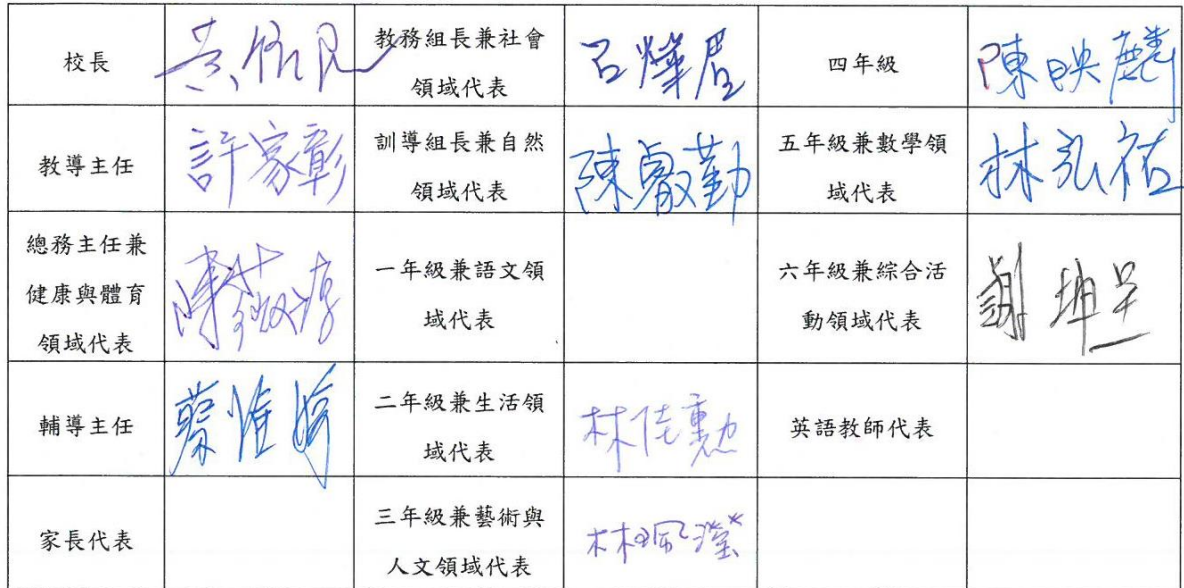 校長
教務組長兼社會
領域代表
呂燁眉
四年級
陳映麟
教導主任
許家彰
訓導組長兼自然
領域代表
陳睿勤
五年級兼數學領
域代表
林弘祐
總務主任兼
健康與體育
領域代表
一年級兼語文領
域代表
六年級兼綜合活
動領域代表
謝坤呈
輔導主任
二年級兼生活領
域代表
林佳勳
英語教師代表
家長代表
三年級兼藝術與
人文領域代表